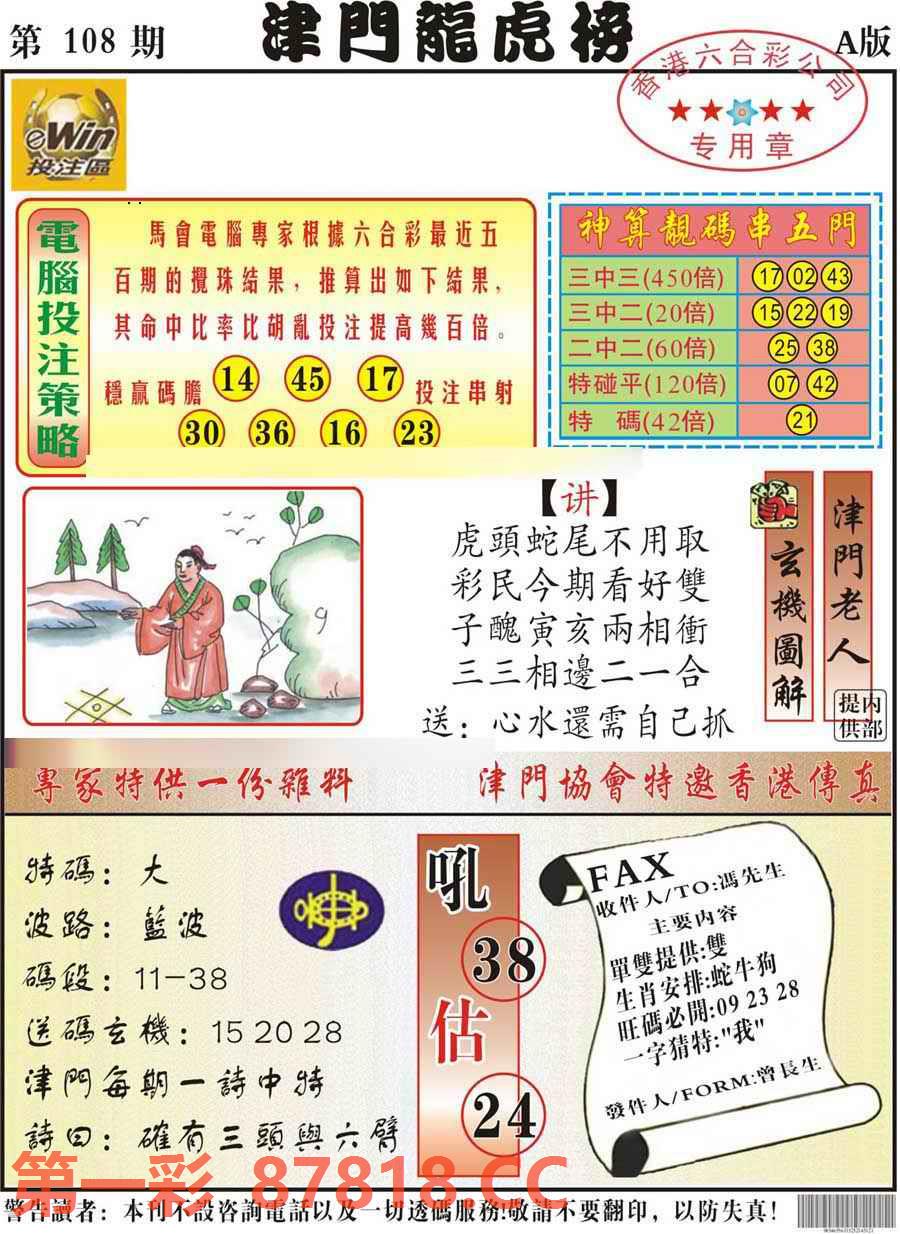 第 108 期
津門龍虎榜
A版
香港六合彩公司
专用章
eWin
投注區
電腦投注策略
馬會電腦專家根據六合彩最近五
百期的攪珠結果，推算出如下結果，
其命中比率比胡亂投注提高幾百倍。
穩贏碼膽 14 45 17 投注串射
30 36 16 23
神算靚碼串五門
三中三(450倍) 17 02 43
三中二(20倍) 15 22 19
二中二(60倍) 25 38
特碰平(120倍) 07 42
特 碼(42倍) 21
【讲】
虎頭蛇尾不用取
彩民今期看好雙
子醜寅亥兩相衝
三三相邊二一合
送：心水還需自己抓
玄機圖解
津門老人
内部提供
專家特供一份雜料
津門協會特邀香港傳真
特碼：大
波路：藍波
碼段：11-38
送碼玄機：15 20 28
津門每期一詩中特
詩曰：確有三頭與六臂
吼
38
估
24
FAX
收件人/TO:馮先生
主要内容
單雙提供:雙
生肖安排:蛇牛狗
旺碼必開:09 23 28
一字猜特:"我"
發件人/FORM:曾長生
第一彩 87818.CC
警告讀者：本刊不設咨詢電話以及一切透碼服務!敬請不要翻印，以防失真!